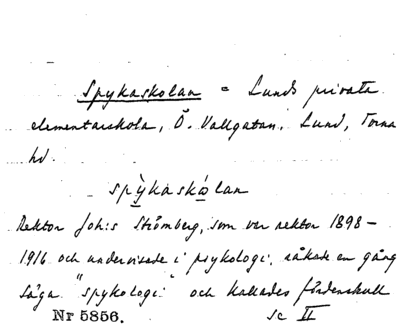 Spykaskolan = Lunds privata
elementarskola, Ö. Vallgatan, Lund, Torna
hd.
spỳkaskólan
Rektor Joh:s Strömberg, som var rektor 1898-
1916 och undervisade i psykologi, råkade en gång
säga "spykologi" och kallades förderskull
Nr 5856. sc II